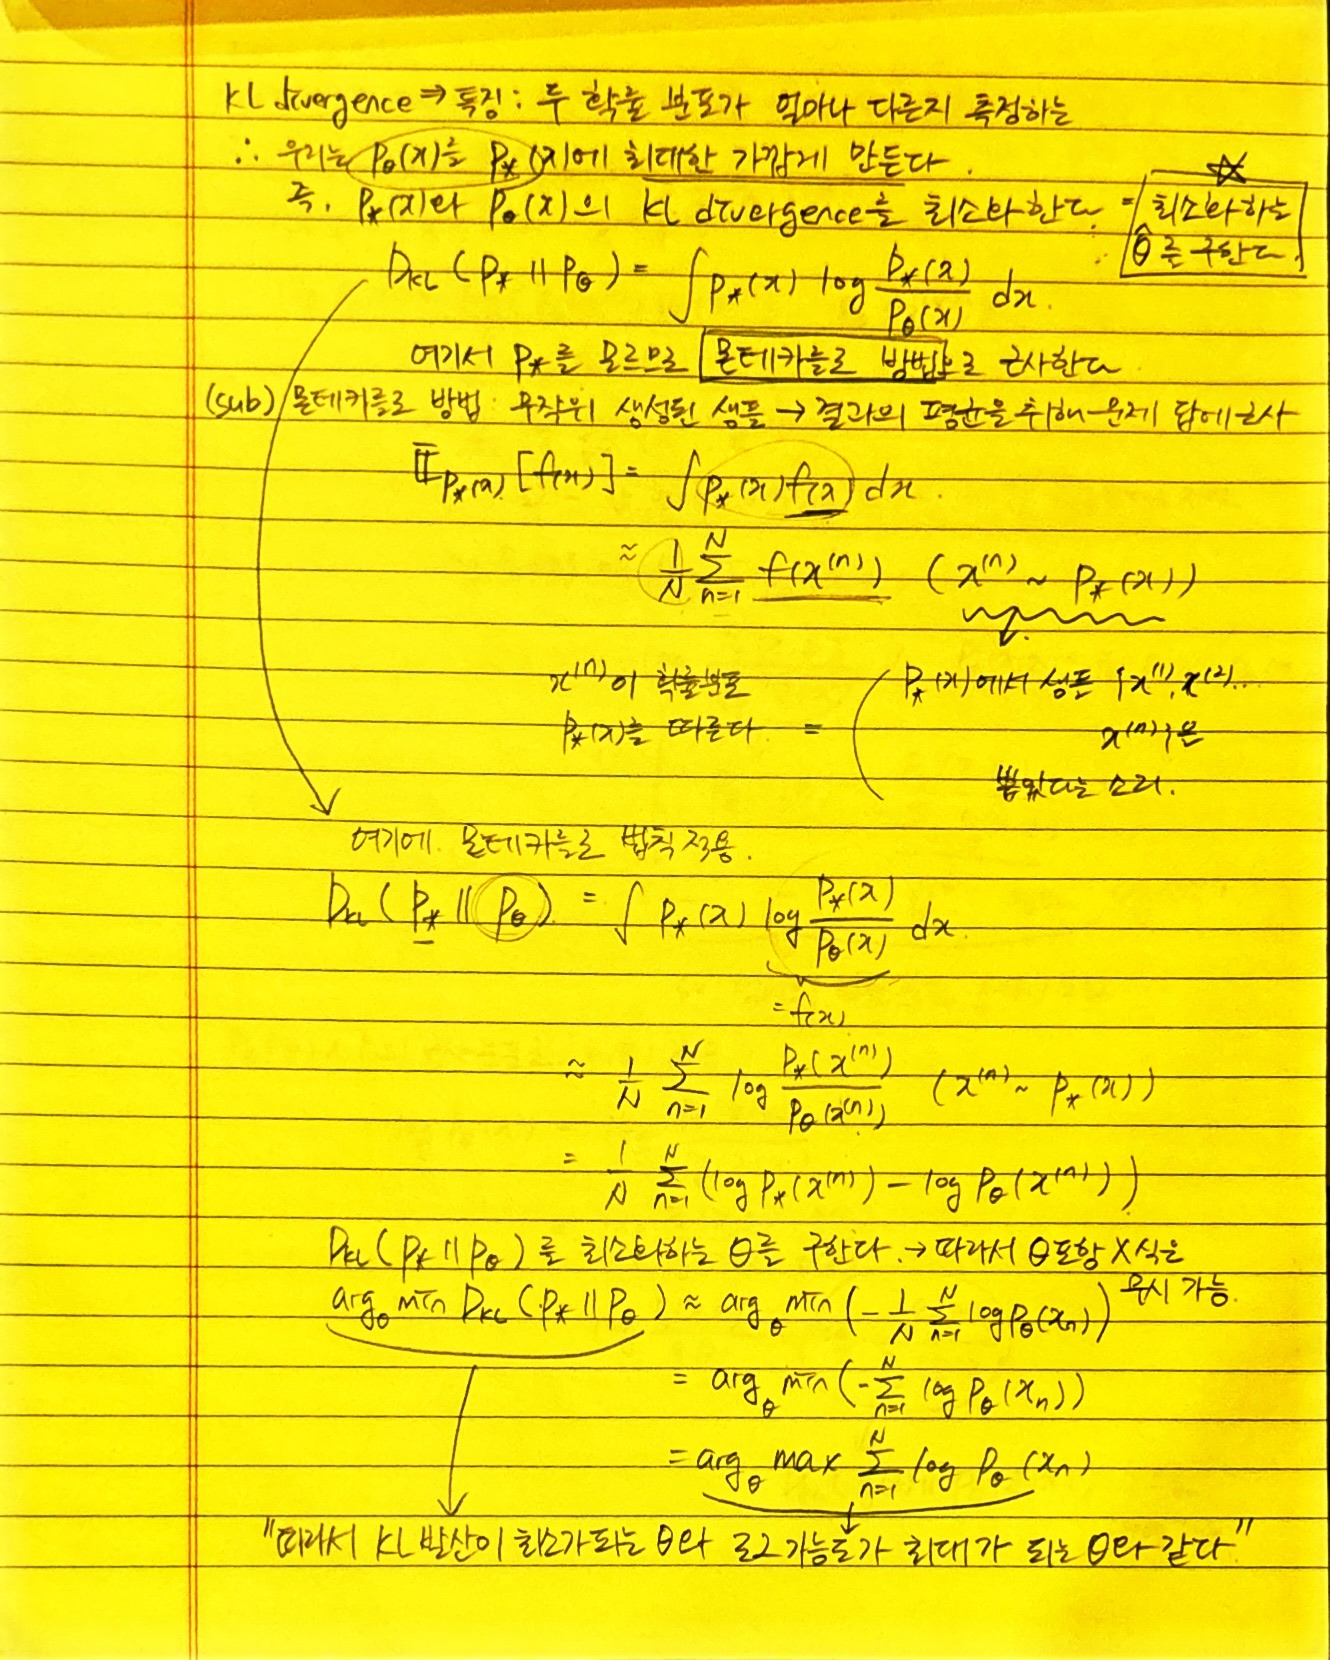 KL divergence ⇒ 특징 : 두 확률 분포가 얼마나 다른지 측정하는
∴ 우리는 Pθ(x)를 P*(x)에 최대한 가깝게 만든다.
즉, P*(x)와 Pθ(x)의 KL divergence를 최소화한다 = ☆ 최소화하는
θ̂를 구한다.
DKL (P* || Pθ) = ∫ P*(x) log P*(x)/Pθ(x) dx.
여기서 P*를 모르므로 몬테카를로 방법으로 근사한다
(sub) 몬테카를로 방법 : 무작위 생성된 샘플 → 결과의 평균을 취해 문제 답에 근사
𝔼P*(x) [f(x)] = ∫ P*(x) f(x) dx.
≈ 1/N Σ_{n=1}^{N} f(x⁽ⁿ⁾) (x⁽ⁿ⁾ ~ P*(x))
x⁽ⁿ⁾이 확률분포
P*(x)를 따른다 =
P*(x)에서 샘플 {x⁽¹⁾, x⁽²⁾...
x⁽ⁿ⁾}은
뽑았다는 소리.
여기에 몬테카를로 법칙 적용.
DKL (P* || Pθ) = ∫ P*(x) log P*(x)/Pθ(x) dx.
= f(x)
≈ 1/N Σ_{n=1}^{N} log P*(x⁽ⁿ⁾)/Pθ(x⁽ⁿ⁾) (x⁽ⁿ⁾ ~ P*(x))
= 1/N Σ_{n=1}^{N} (log P*(x⁽ⁿ⁾) − log Pθ(x⁽ⁿ⁾))
DKL(P* || Pθ)를 최소화하는 θ를 구한다. → 따라서 θ포함 X식은
무시 가능.
argθ min DKL(P* || Pθ) ≈ argθ min (− 1/N Σ_{n=1}^{N} log Pθ(xn))
= argθ min (− Σ_{n=1}^{N} log Pθ(xn))
= argθ max Σ_{n=1}^{N} log Pθ(xn)
"따라서 KL 발산이 최소가 되는 θ와 로그 가능도가 최대가 되는 θ와 같다"